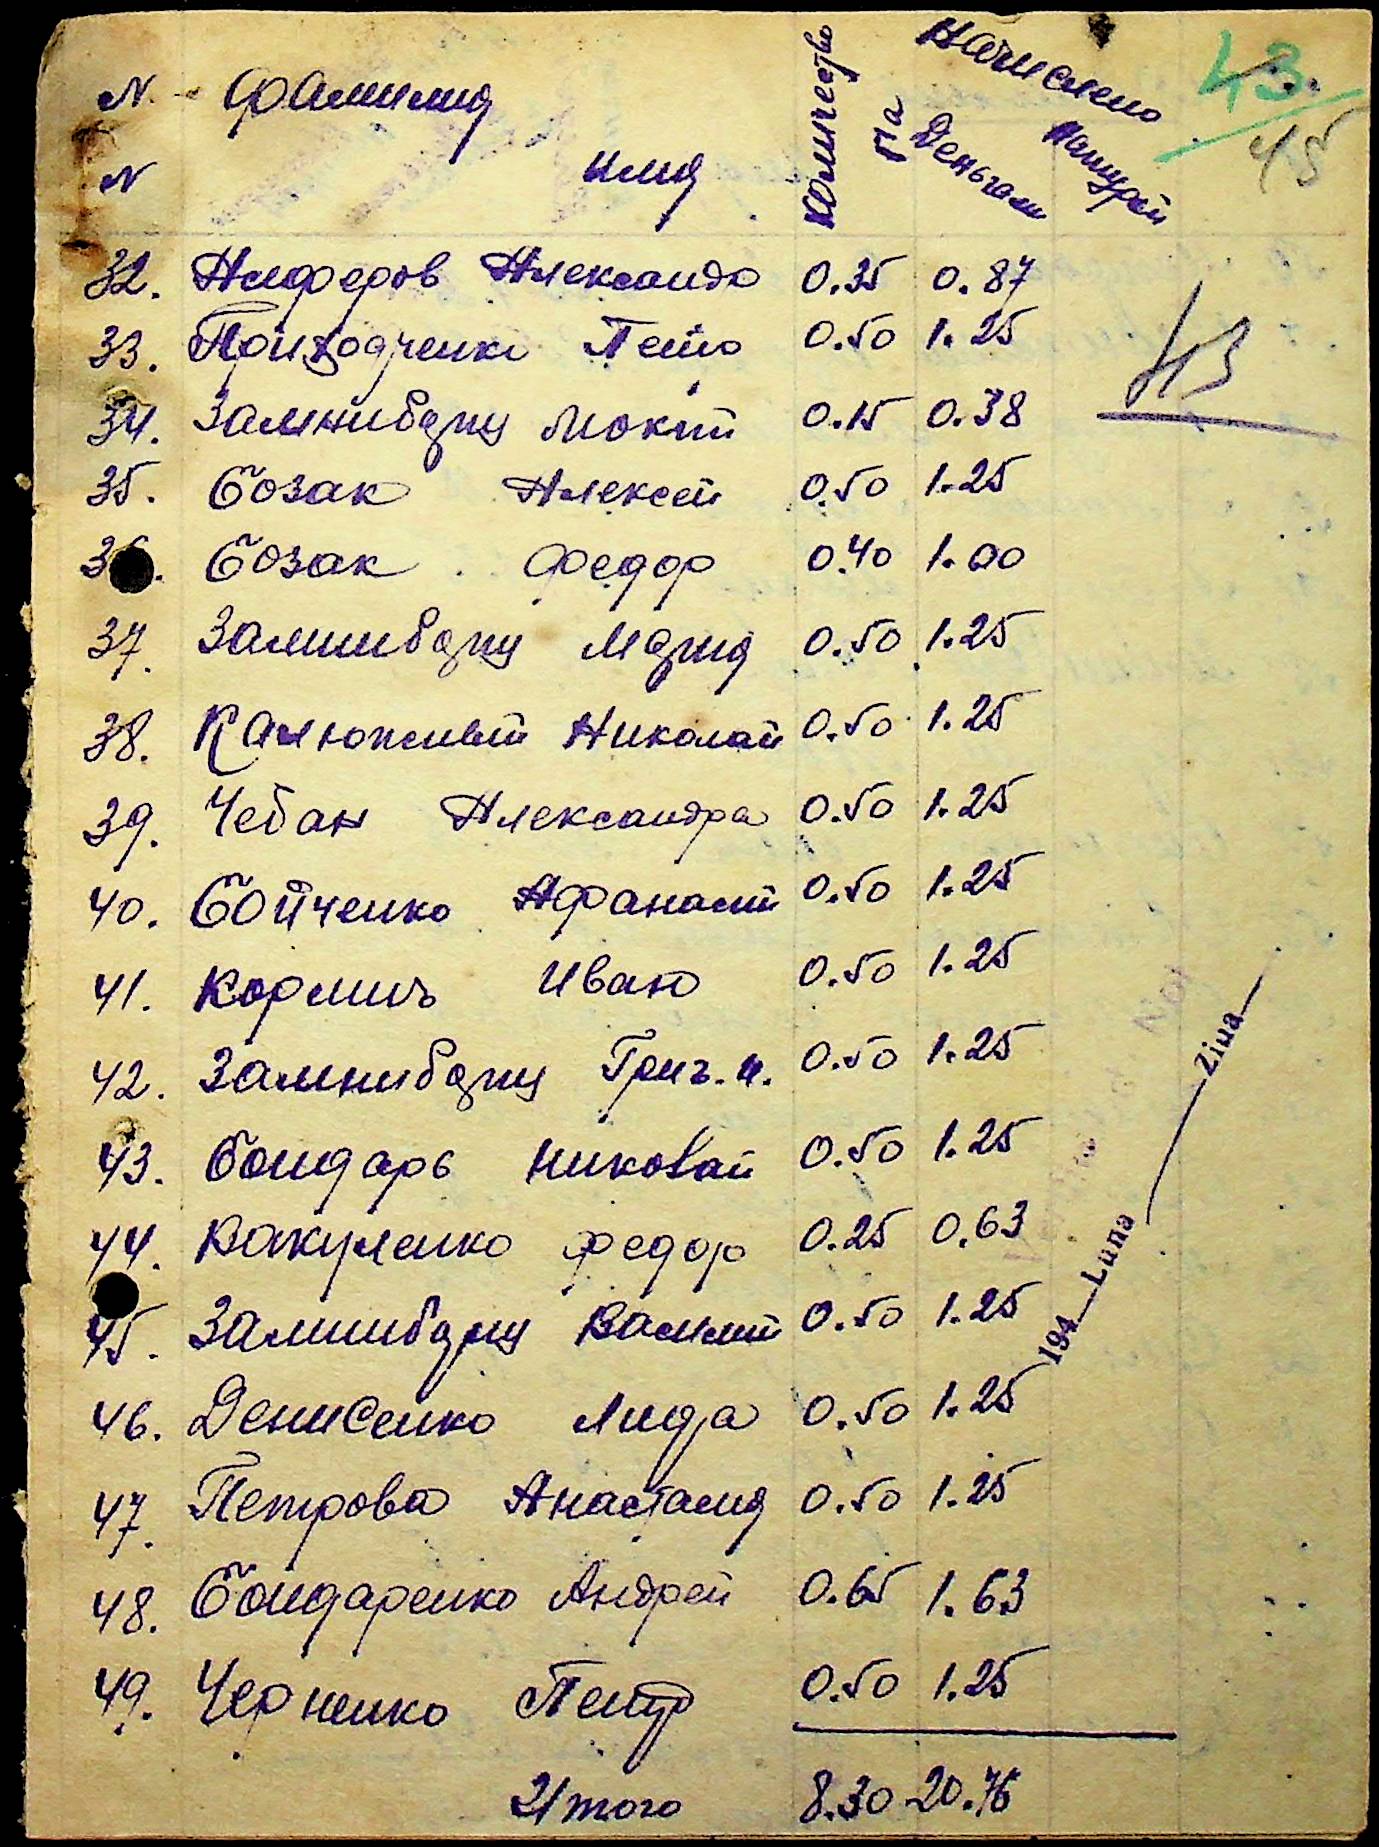 N. Фамилия Количество Начислено 43.
N имя га Деньгами натурой 45
32. Алферов Александр 0.35 0.87
33. Приходченко Петро 0.50 1.25
43
34. Замнибоrщ Мокий 0.15 0.38
35. Бозак Алексей 0.50 1.25
36. Бозак Федор 0.40 1.00
37. 0.50 1.25
38. Калюжный Николай 0.50 1.25
39. Чебан Александра 0.50 1.25
40. Бойченко Афанасий 0.50 1.25
41. Кормичъ Иван 0.50 1.25
42. Григ. И. 0.50 1.25
43. Бондарь Николай 0.50 1.25
44. Вакуленко Федор 0.25 0.63
45. Василий 0.50 1.25
46. Денисенко Лида 0.50 1.25
47. Петрова Анастасия 0.50 1.25
48. Бондаренко Андрей 0.65 1.63
49. Черненко Петр 0.50 1.25
Итого 8.30 20.76
194 Luna Ziua